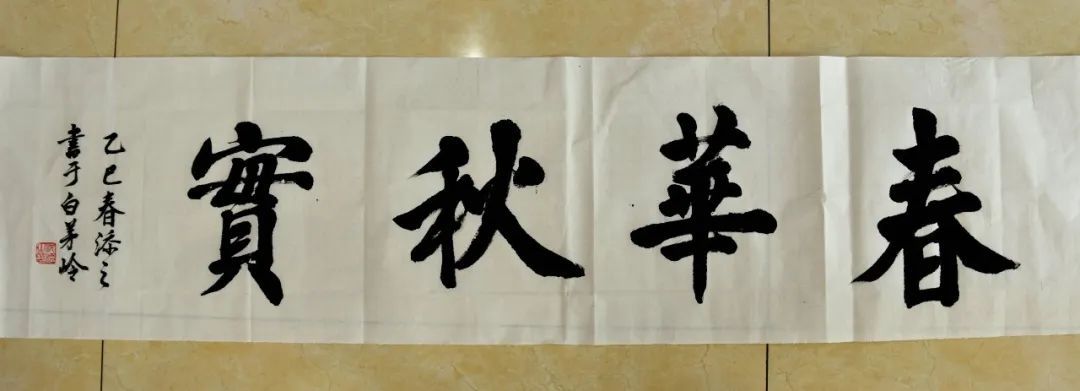 春華秋實
乙巳春添之
書于白茅岭